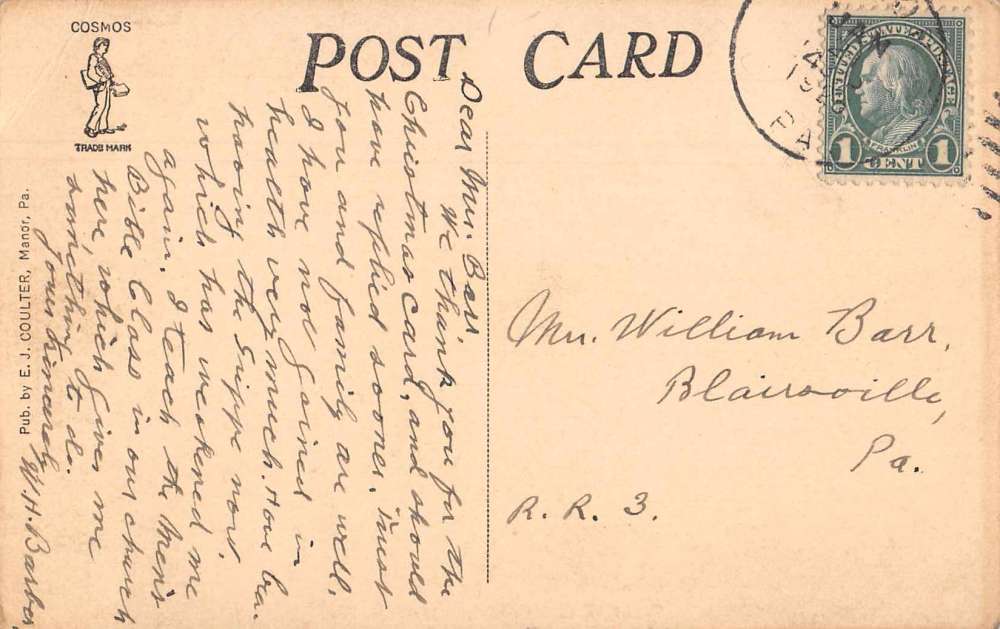 COSMOS
TRADE MARK
POST CARD
Pub. by E. J. COULTER, Manor, Pa.
JAN
PA
UNITED STATES POSTAGE
FRANKLIN
1 CENT 1
Dear Mr. Barr,
We thank you for the
Christmas card, and should
have replied sooner. Trust
you and family are well.
I have not gained in
health very much. Have been
having the Grippe now,
which has weakened me
again. I teach the Men's
Bible Class in our church
here which gives me
something to do.
Yours sincerely
W. H. Barber.
Mr. William Barr,
Blairsville,
Pa.
R. R. 3.